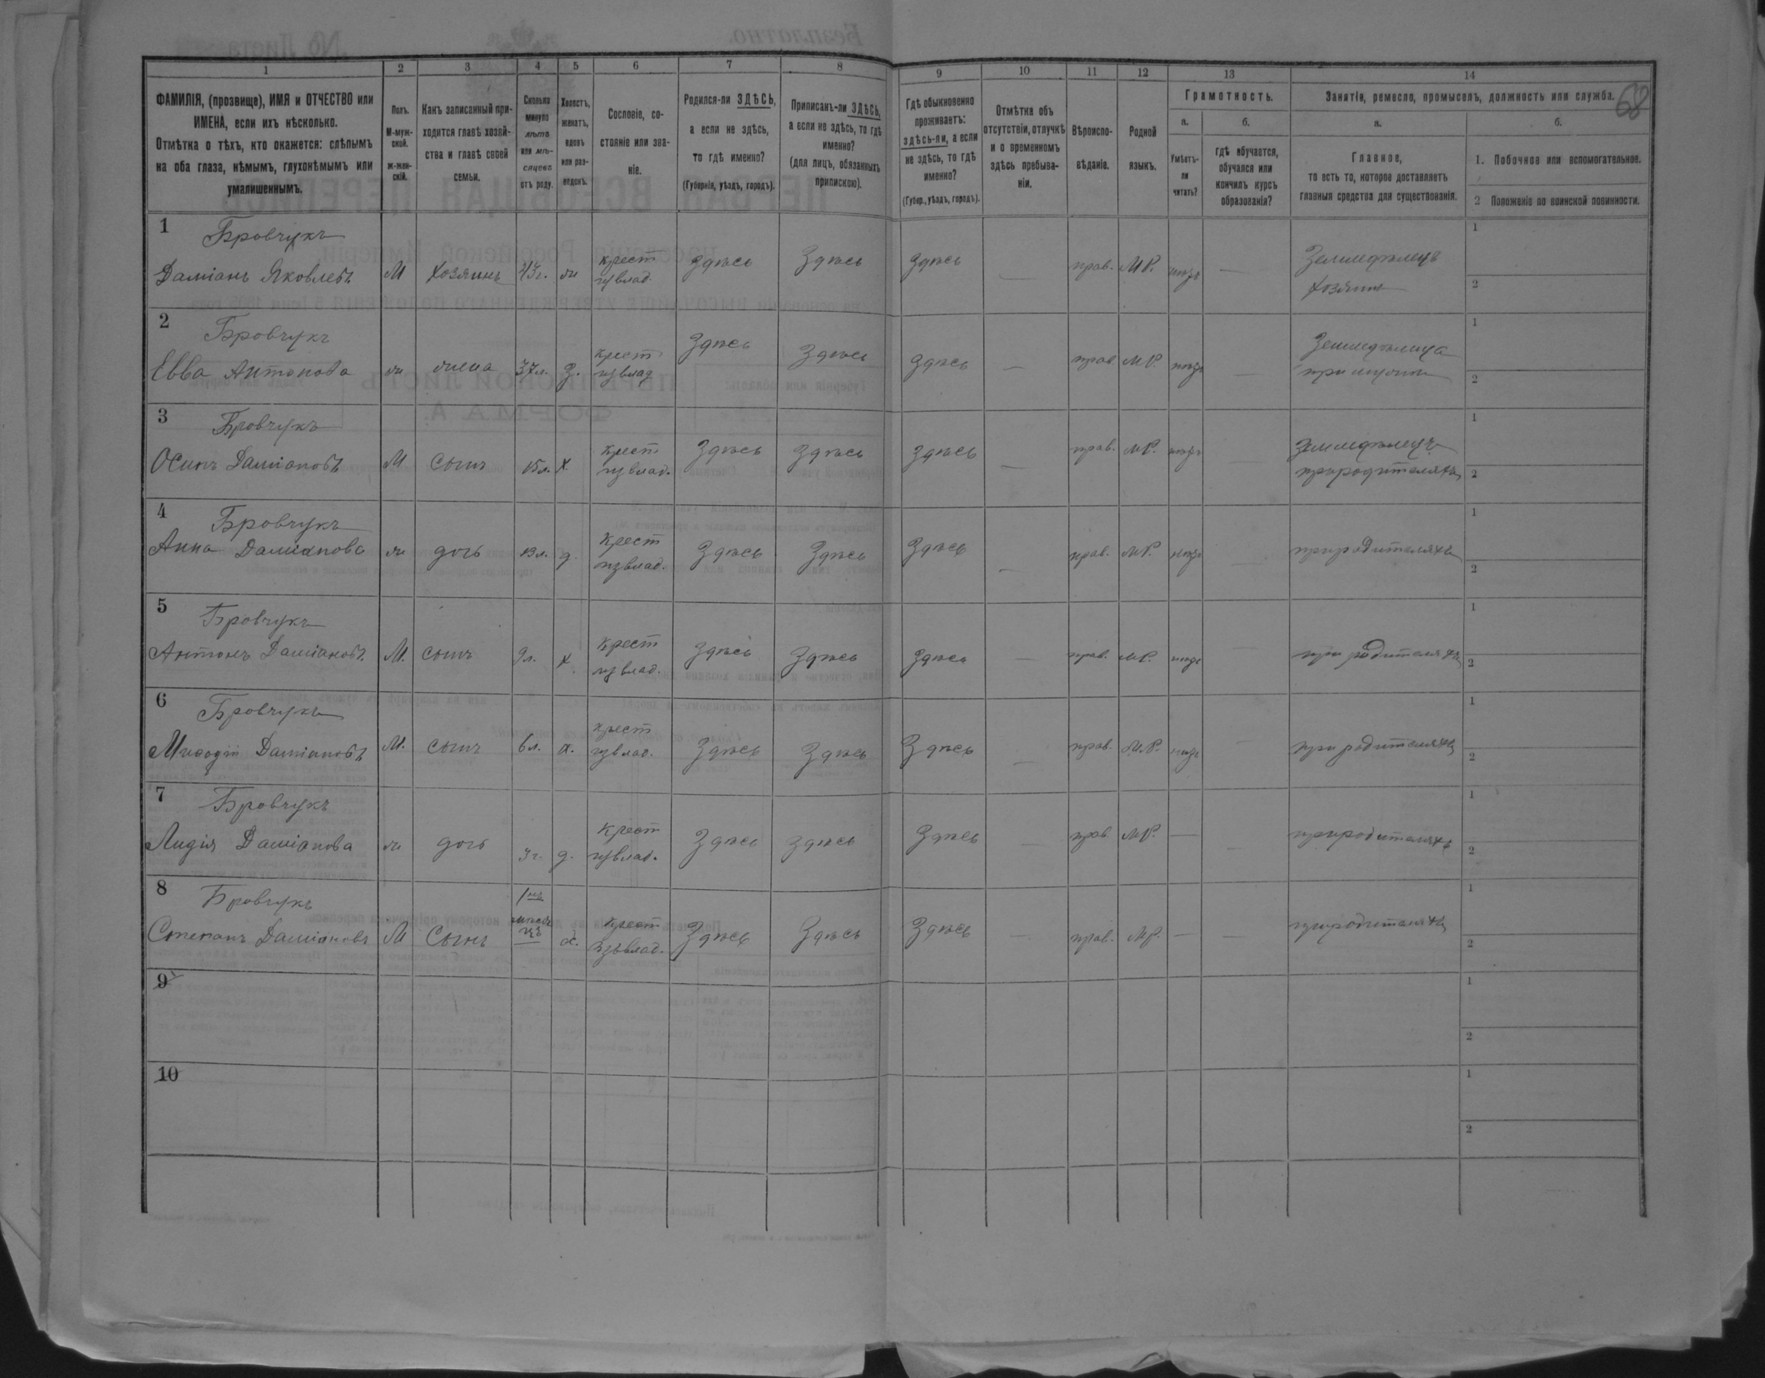 68
1 2 3 4 5 6 7 8 9 10 11 12 13 14
ФАМИЛІЯ, (прозвище), ИМЯ и ОТЧЕСТВО или ИМЕНА, если ихъ нѣсколько.
Отмѣтка о тѣхъ, кто окажется: слѣпымъ на оба глаза, нѣмымъ, глухонѣмымъ или умалишеннымъ.
Полъ. М-муж-ской. ж-жен-скій.
Какъ записанный при-ходится главѣ хозяй-ства и главѣ своей семьи.
Сколько минуло лѣтъ или мѣ-сяцевъ отъ роду.
Холостъ, женатъ, вдовъ или раз-веденъ.
Сословіе, со-стояніе или зва-ніе.
Родился-ли ЗДѢСЬ, а если не здѣсь, то гдѣ именно?
(Губернія, уѣздъ, городъ).
Приписанъ-ли ЗДѢСЬ, а если не здѣсь, то гдѣ именно?
(для лицъ, обязанныхъ припискою).
Гдѣ обыкновенно проживаетъ: здѣсь-ли, а если не здѣсь, то гдѣ именно?
(Губер., уѣздъ, городъ).
Отмѣтка объ отсутствіи, отлучкѣ и о временномъ здѣсь пребыва-ніи.
Вѣроиспо-вѣданіе.
Родной языкъ.
Грамотность.
а. Умѣетъ-ли читать?
б. гдѣ обучается, обучался или кончилъ курсъ образованія?
Занятіе, ремесло, промыселъ, должность или служба.
а. Главное, то есть то, которое доставляетъ главныя средства для существованія.
б. 1. Побочное или вспомогательное.
2 Положеніе по воинской повинности.
1 Бровчукъ
Даміанъ Яковлевъ М Хозяинъ 43г. крест. изъ влад. Здѣсь Здѣсь Здѣсь прав. М.Р. Земледѣлецъ хозяинъ
2 Бровчукъ
Евва Антонова жена 37л. крест изъ влад Здѣсь Здѣсь Здѣсь — прав М.Р. Земледѣлица при мужѣ
3 Бровчукъ
Осипъ Даміановъ М сынъ 15л. х крест изъ влад. Здѣсь Здѣсь Здѣсь — прав. М.Р. Земледѣлецъ при родителяхъ
4 Бровчукъ
Анна Даміанова дочь 13л. д. крест изъ влад. Здѣсь Здѣсь Здѣсь — прав. М.Р. при родителяхъ
5 Бровчукъ
Антонъ Даміановъ М. сынъ 9л. х. крест изъ влад. Здѣсь Здѣсь Здѣсь — прав. М.Р. при родителяхъ
6 Бровчукъ
Меѳодій Даміановъ М. сынъ 6л. х. крест изъ влад. Здѣсь Здѣсь Здѣсь — прав. М.Р. при родителяхъ
7 Бровчукъ
Лидія Даміанова дочь д. крест изъ влад. Здѣсь Здѣсь Здѣсь — прав М.Р. — при родителяхъ
8 Бровчукъ
Степанъ Даміановъ М Сынъ х. крест изъ влад. Здѣсь Здѣсь Здѣсь — прав. М.Р. — при родителяхъ
9
10